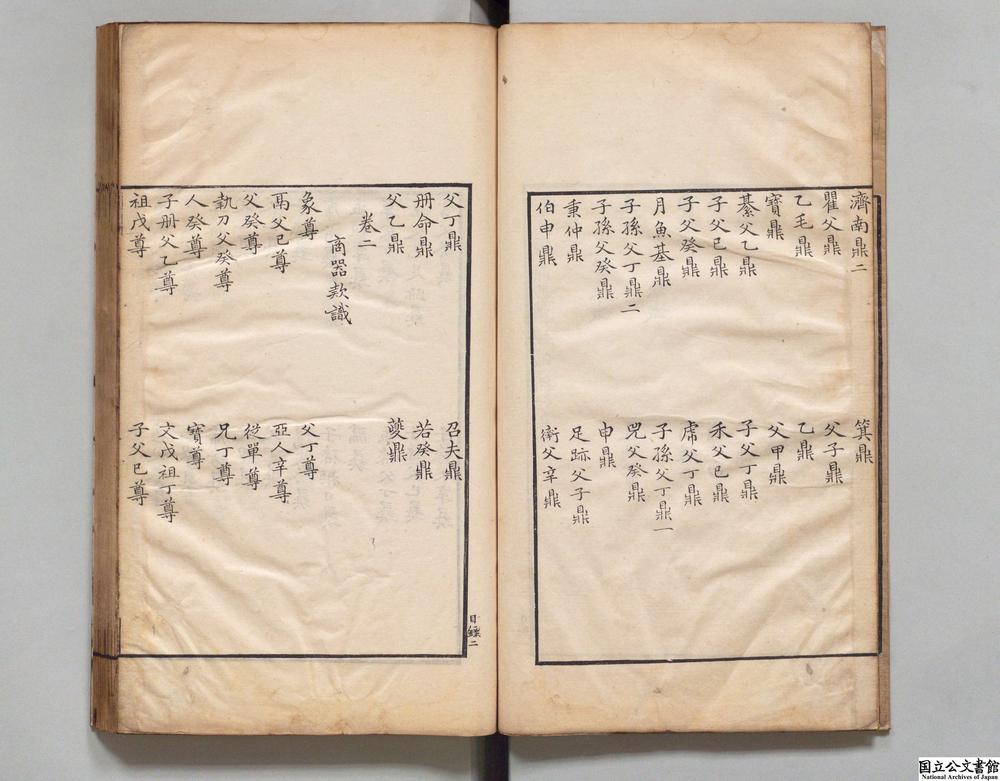 濟南鼎二 箕鼎
瞿父鼎 父子鼎
乙毛鼎 乙鼎
寶鼎 父甲鼎
綦父乙鼎 子父丁鼎
子父已鼎 禾父已鼎
子父癸鼎 虎父丁鼎
月魚基鼎 子孫父丁鼎一
子孫父丁鼎二 兕父癸鼎
子孫父癸鼎 申鼎
秉仲鼎 足跡父子鼎
伯申鼎 衛父辛鼎
父丁鼎 召夫鼎
册命鼎 若癸鼎
父乙鼎 夔鼎
卷二
商器款識
象尊 父丁尊
鬲父已尊 亞人辛尊
父癸尊 從單尊
執刀父癸尊 兄丁尊
人癸尊 寶尊
子册父乙尊 文戊祖丁尊
祖戊尊 子父已尊
目錄二
国立公文書館
National Archives of Japan